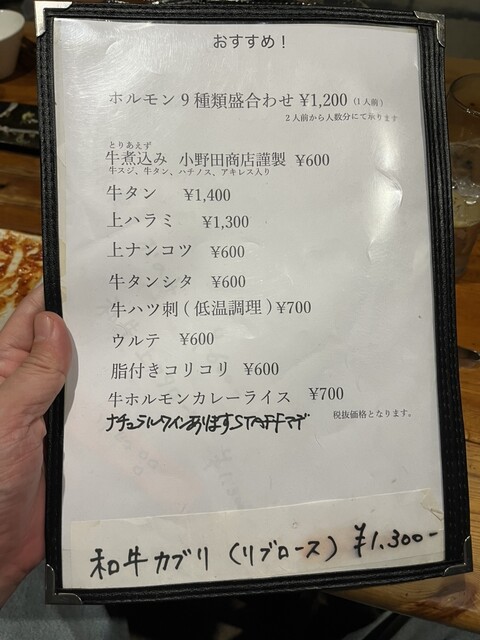 おすすめ！
ホルモン9種類盛合わせ ¥1,200 (1人前)
2人前から人数分にて承ります
とりあえず
牛煮込み 小野田商店謹製 ¥600
牛スジ、牛タン、ハチノス、アキレス入り
牛タン ¥1,400
上ハラミ ¥1,300
上ナンコツ ¥600
牛タンシタ ¥600
牛ハツ刺(低温調理)¥700
ウルテ ¥600
脂付きコリコリ ¥600
牛ホルモンカレーライス ¥700
税抜価格となります。
ナチュラルワインありますSTAFFマデ
和牛カブリ(リブロース) ¥1,300-